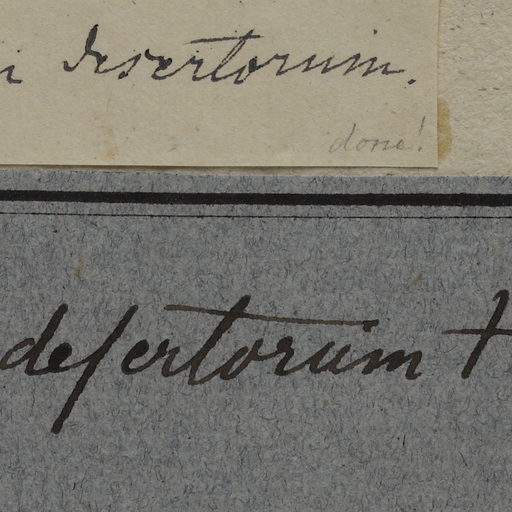 i desertorum.
done!
deſertorum †